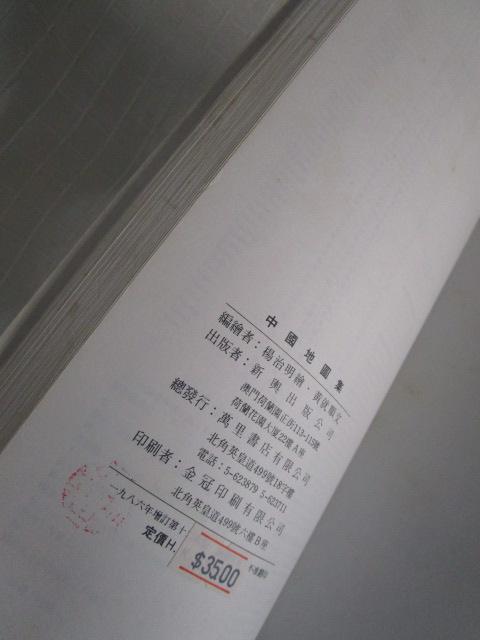 中國地圖集
編繪者：楊治明繪．黃就順文
出版者：新奧出版公司
澳門荷蘭園正街113-115號
荷蘭花園大厦22樓A座
總發行：萬里書店有限公司
北角英皇道499號18字樓
電話：5-623879 5-623711
印刷者：金冠印刷有限公司
北角英皇道499號六樓B座
一九八六年增訂第十
定價H.
$35.00